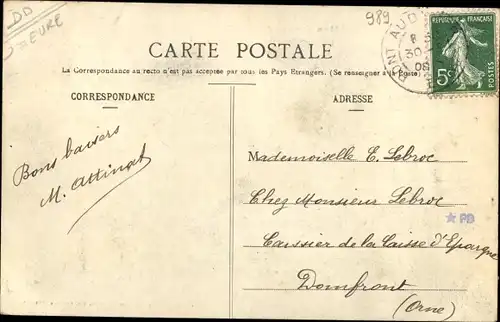 DD
EURE
989
PONT AUD
30
08
REPUBLIQUE FRANÇAISE
5c
POSTES
CARTE POSTALE
La Correspondance au recto n'est pas acceptée par tous les Pays Etrangers. (Se renseigner à la Poste)
CORRESPONDANCE
ADRESSE
Bons baisers
M. Attinat
Mademoiselle E. Lebroc
Chez Monsieur Lebroc
★ PD
Caissier de la Caisse d'Epargne
Domfront
(Orne)